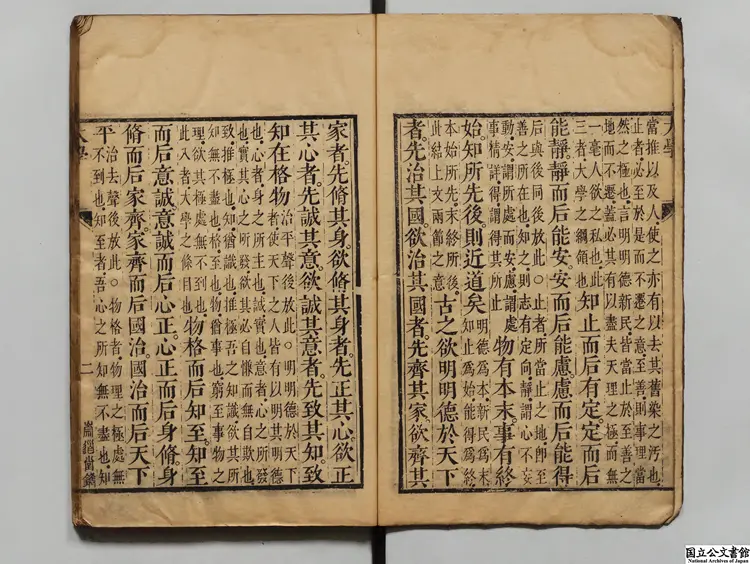 大學
當推以及人使之亦有以去其舊染之汚也
止者必至於是而不遷之意至善則事理當
然之極也言明明德新民皆當止於至善之
地而不遷蓋必其有以盡夫天理之極而無
一毫人欲之私也此
三者大學之綱領也
知止而后有定定而后
能靜靜而后能安安而后能慮慮而后能得
后與後同後放此○止者所當止之地即至
善之所在也知之則志有定向靜謂心不妄
動安謂所處而安慮謂處
事精詳得謂得其所止
物有本末事有終
始知所先後則近道矣
明德為本新民為末
知止為始能得為終
本始所先末終所後
此結上文兩節之意
古之欲明明德於天下
者先治其國欲治其國者先齊其家欲齊其
家者先脩其身欲脩其身者先正其心欲正
其心者先誠其意欲誠其意者先致其知致
知在格物
治平聲後放此○明明德於天下
者使天下之人皆有以明其明德
也心者身之所主也誠實也意者心之所發
也實其心之所發欲其必自慊而無自欺也
致推極也知猶識也推極吾之知識欲其所
知無不盡也格至也物猶事也窮至事物之
理欲其極處無不到也
此八者大學之條目也
物格而后知至知至
而后意誠意誠而后心正心正而后身脩身
脩而后家齊家齊而后國治國治而后天下
平
治去聲後放此○物格者物理之極處無
不到也知至者吾心之所知無不盡也知
大學
二
国立公文書館
National Archives of Japan